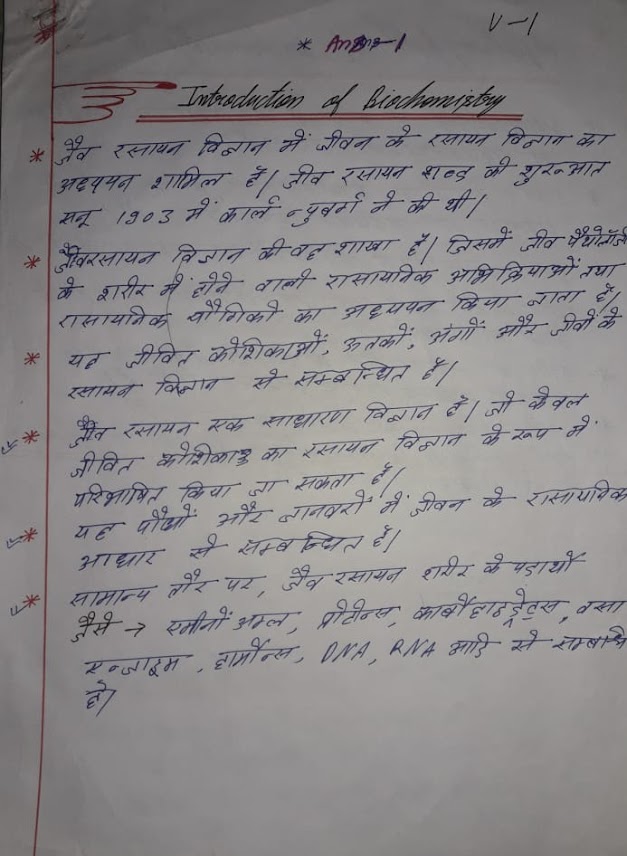 U-1
* Ans-1
Introduction of Biochemistry
* जैव रसायन विज्ञान में जीवन के रसायन विज्ञान का
अध्ययन शामिल है। जीव रसायन शब्द की शुरुआत
सन् 1903 में कार्ल न्युबर्ग ने की थी।
* जैवरसायन विज्ञान की वह शाखा है। जिसमें जीव
के शरीर में होने वाली रासायनिक अभिक्रियाओं तथा
रासायनिक यौगिको का अध्ययन किया जाता है।
* यह जीवित कोशिकाओं, ऊतकों, अंगों और जीवों के
रसायन विज्ञान से सम्बन्धित है।
* जैव रसायन एक साधारण विज्ञान है। जो केवल
जीवित का रसायन विज्ञान के रूप में
परिभाषित किया जा सकता है।
* यह पौधों और जानवरों में जीवन के रासायनिक
आधार से सम्बन्धित है।
* सामान्य तौर पर, जैव रसायन शरीर के पदार्थो
जैसे → एमीनों अम्ल, प्रोटीन्स, कार्बोहाइड्रेट्स, वसा
एन्जाइम, हार्मोन्स, DNA, RNA आदि से सम्बन्धि
है।